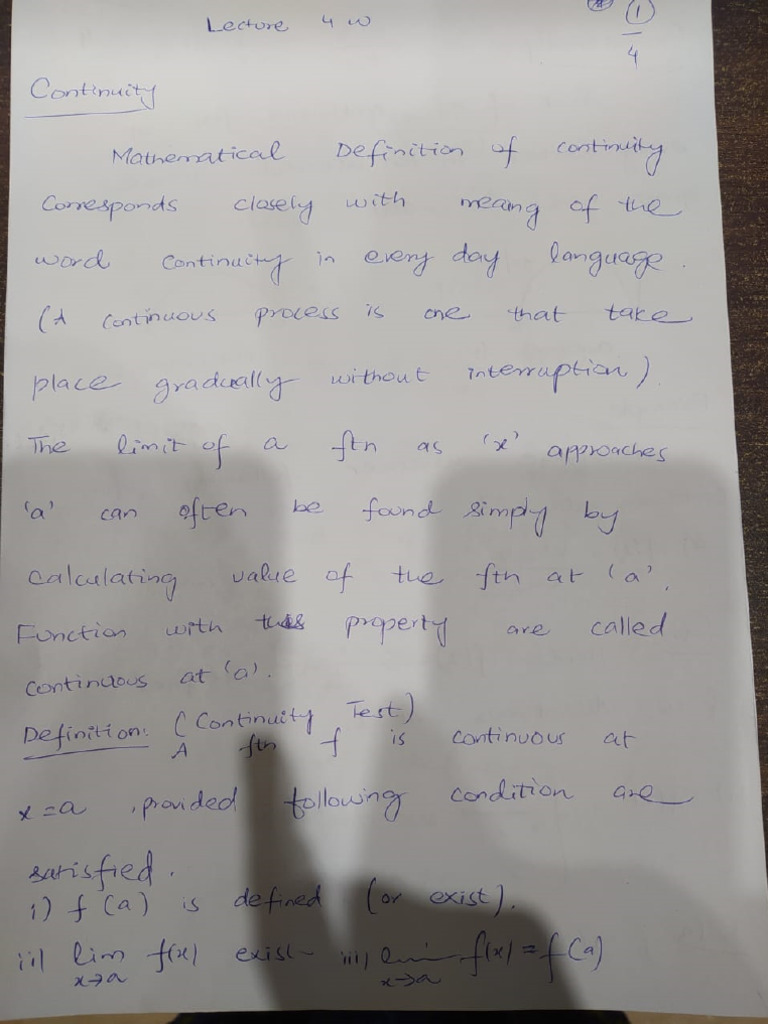 Lecture 4 w
1
4
Continuity
Mathematical Definition of continuity
Corresponds closely with meaing of the
word continuity in every day language.
(A continuous process is one that take
place gradually without interruption).
The limit of a ftn as 'x' approaches
'a' can often be found simply by
calculating value of the ftn at 'a'.
Function with this property are called
continuous at 'a'.
Definition: (Continuity Test)
A ftn f is continuous at
x=a, provided following condition are
satisfied.
i) f(a) is defined (or exist).
ii) lim x→a f(x) exist iii) lim x→a f(x) = f(a)